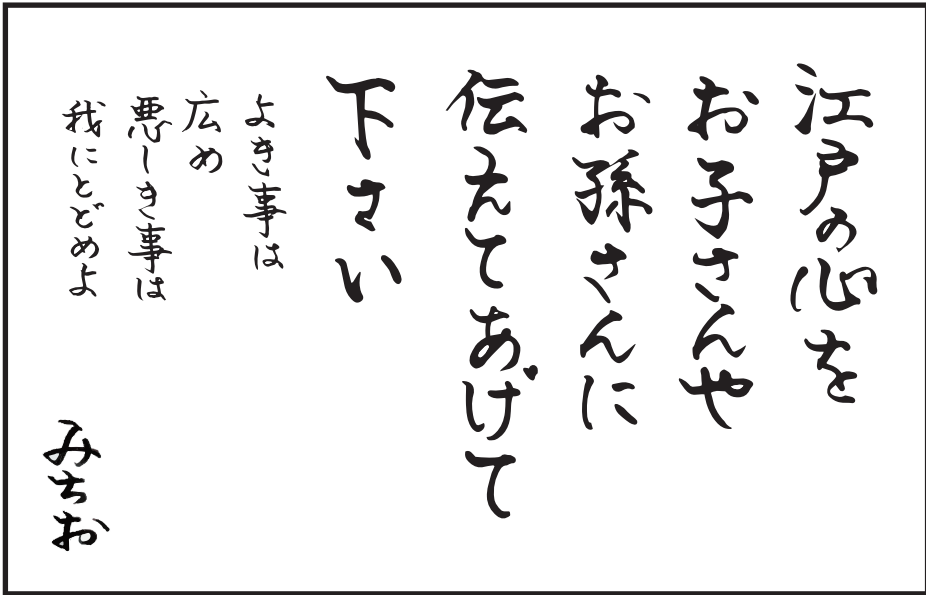 江戸の心を
お子さんや
お孫さんに
伝えてあげて
下さい
よき事は
広め
悪しき事は
我にとどめよ
みちお